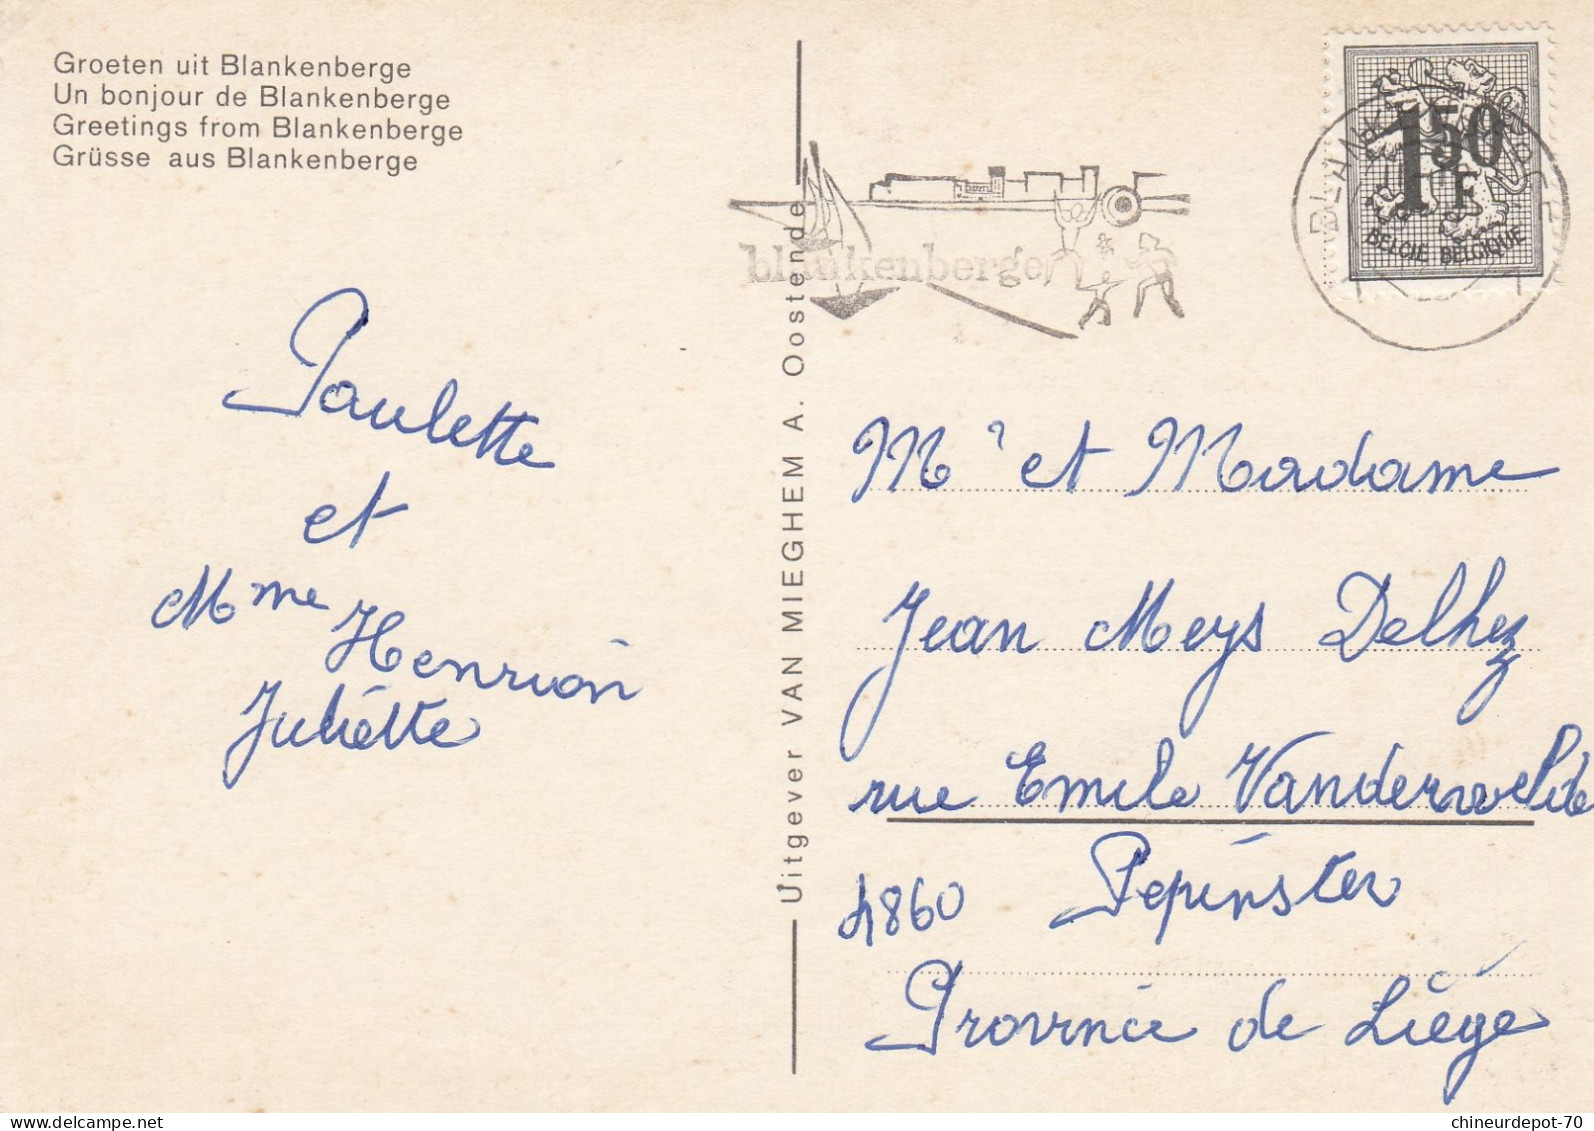 Groeten uit Blankenberge
Un bonjour de Blankenberge
Greetings from Blankenberge
Grüsse aus Blankenberge
Paulette
et
Mme Henrion
Juliette
Uitgever VAN MIEGHEM A. Oostende
blankenberge
1F50
BELGIE BELGIQUE
Mr et Madame
Jean Meys Delhez
rue Emile Vandervelde
4860 Pepinster
Province de Liége
chineurdepot-70